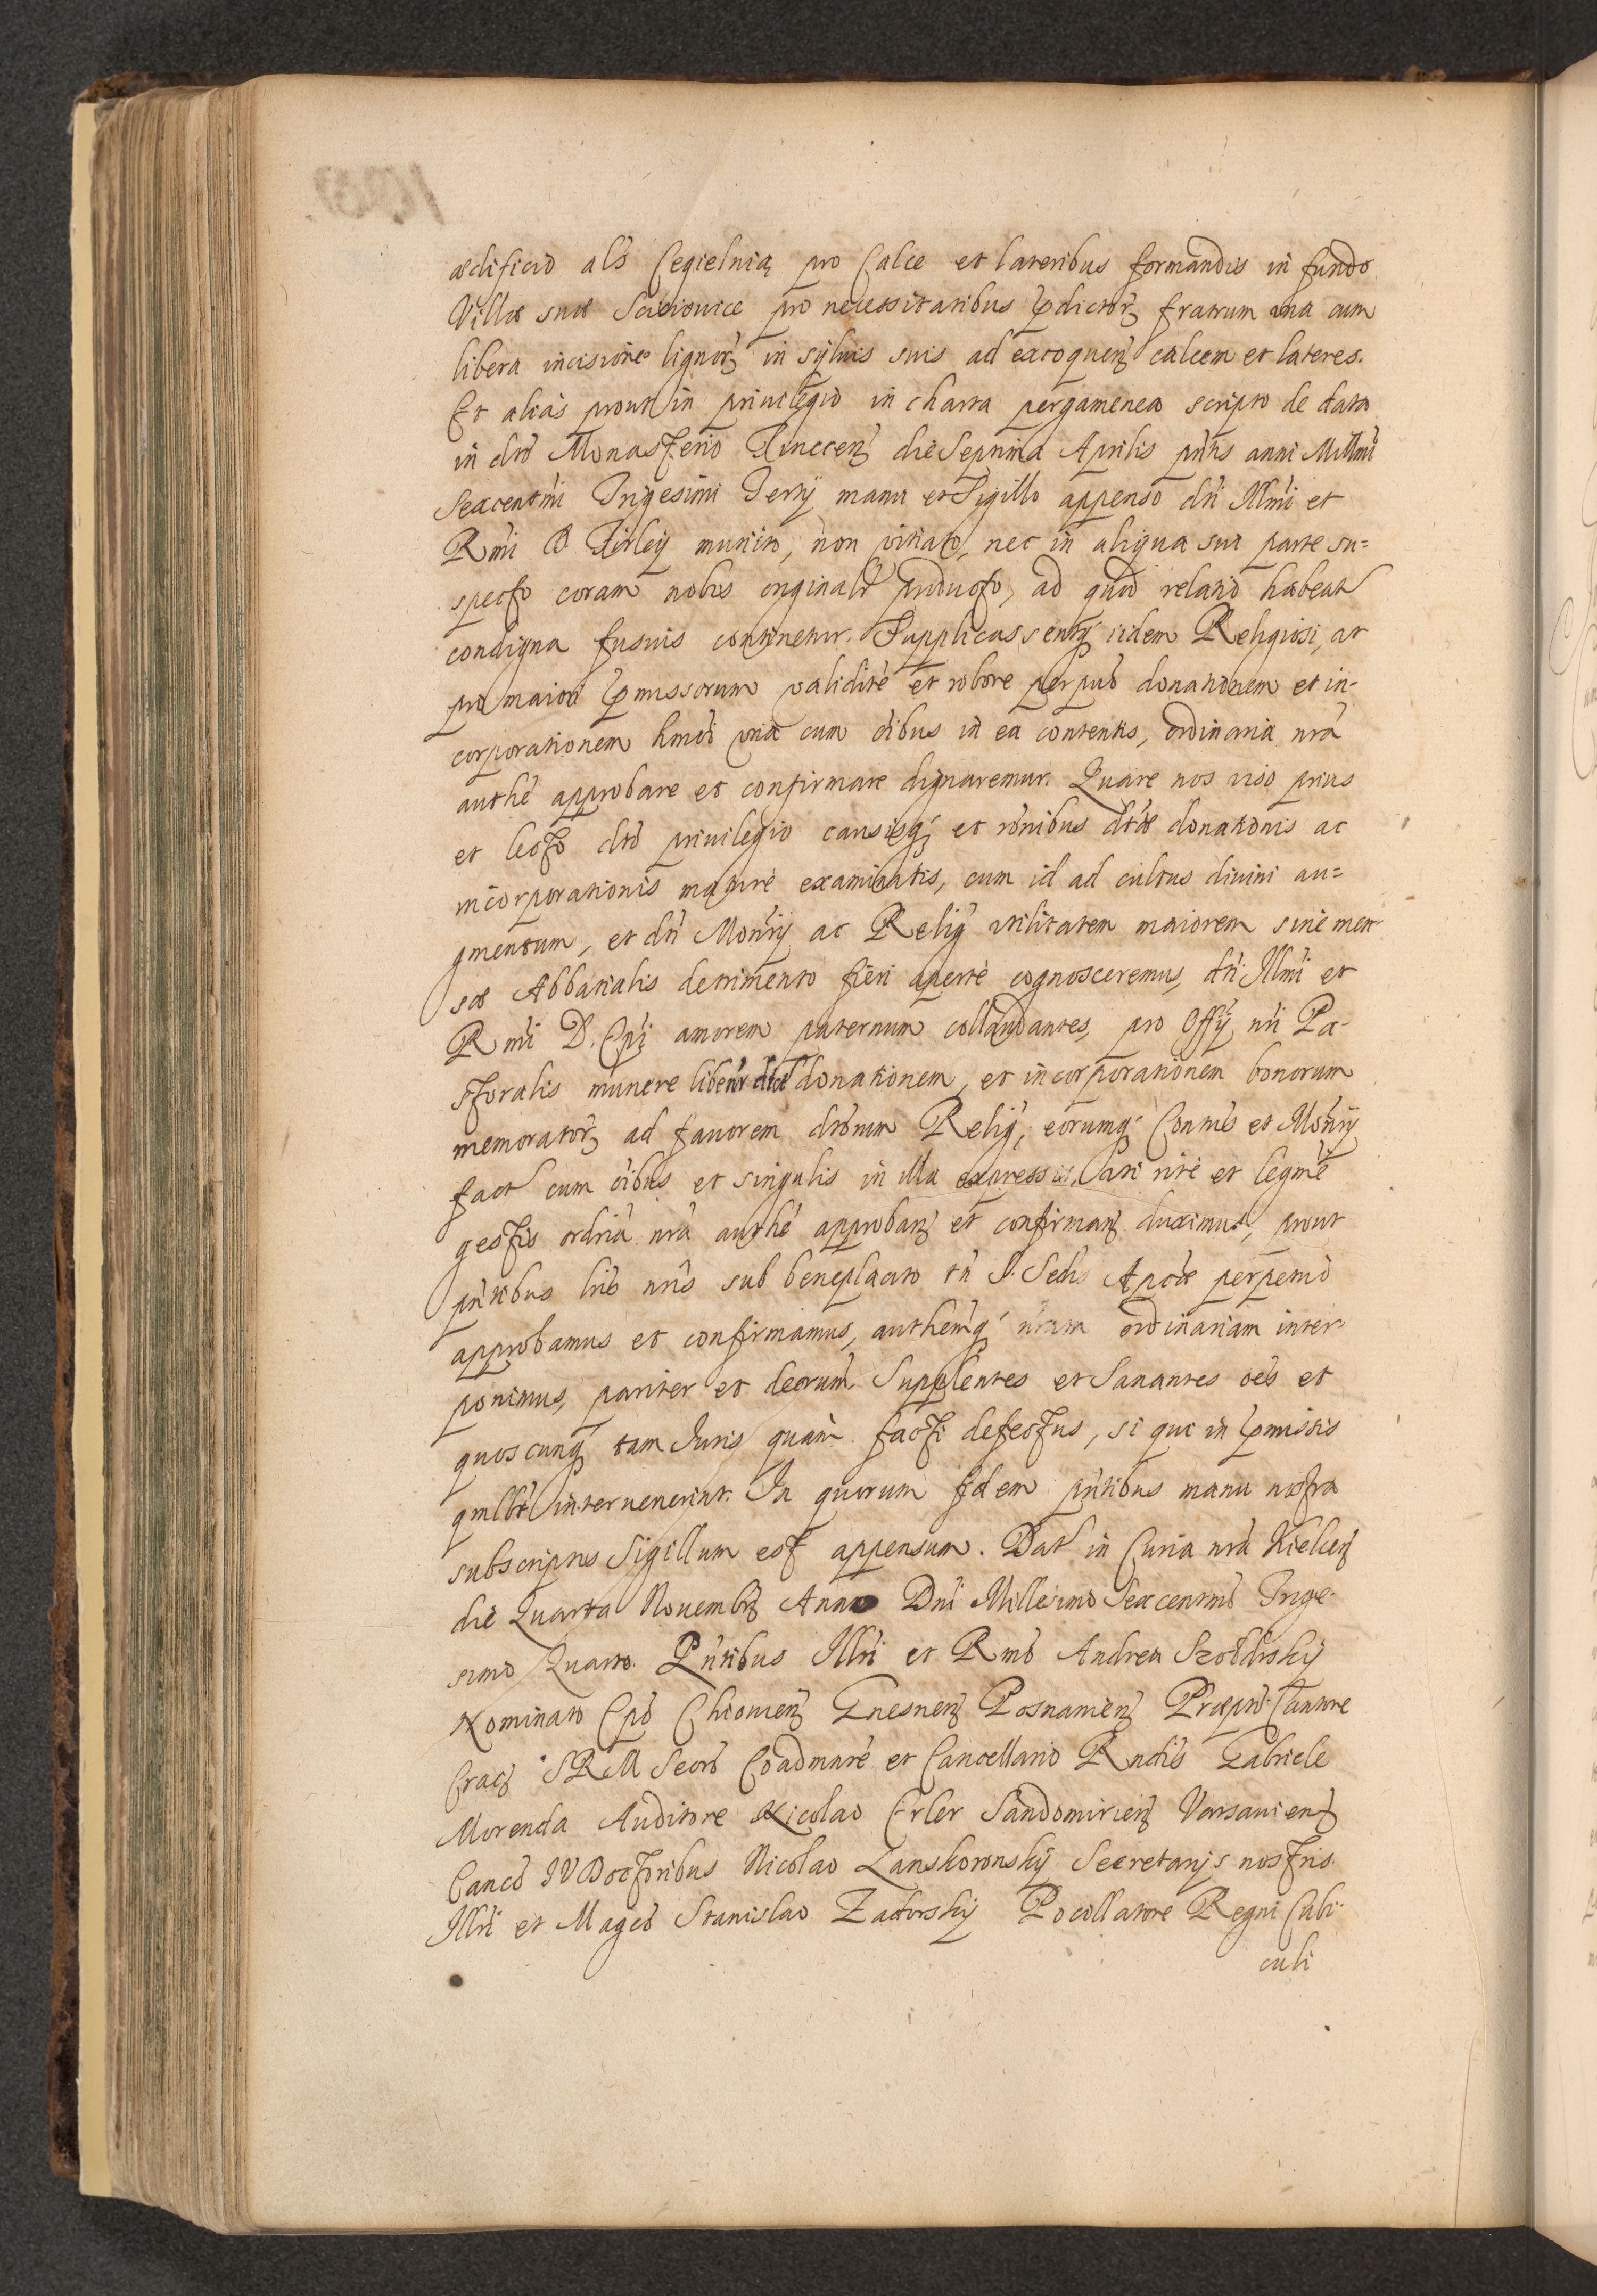 ædificio als Cegielnią pro Calce et lateribus formandis in fundo
Villæ suæ Sciciouice pro necessitatibus pdictorꝫ fratrum una cum
libera incisione lignorꝫ in syluis suis ad excoquenꝫ calcem et lateres.
Et aliàs prout in priuilegio in charta pergamenea scripto de data
in dto Monasterio Tinecenꝫ die Septima Aprilis pntis anni Millmi
Sexcentmi Trigesimi Tertij manu et Sigillo appenso dti Illmi et
Rmi D Firleij munito, non vitiato, nec in aliqua sua parte su=
specto coram nobis originalr producto, ad quod relatio habeat
condigna fusius continetur. Supplicassentqꝫ iidem Religiosi, at
pro maiori pmissorum validite et robore perpuo donationem et in-
corporationem hmoi vna cum oibus in ea contentis, ordinaria nra
authe approbare et confirmare dignaremur. Quare nos viso prius
et lecto dto priuilegio causisqꝫ et ronibus dtæ donationis ac
incorporationis mature examinatis, cum id ad cultus diuini au=
gmentum, et dti Monrij ac Relig vtilitatem maiorem sine men
sæ Abbatialis detrimento fieri aperte cognosceremus, dti Illmi et
Rmi D. Epi amorem paternum collaudantes, pro Offij nri Pa-
storalis munere libentr dtæ donationem, et incorporationem bonorum
memoratorꝫ ad fauorem dtorum Relig, eorumqꝫ Contus et Monrij
fact cum oibus et singulis in illa expressis, ati rite et legme
gestis ordria nra authe approbanꝫ et confirmanꝫ duximus, prout
pntibus lris nris sub beneplacito tn S. Sedis Aplcæ perpetuo
approbamus et confirmamus, authemqꝫ nram ordinariam inter-
ponimus, pariter et decrum. Supplentes et Sanantes oes et
quoscunqꝫ tam Iuris quàm facti defectus, si qui in pmissis
qmlbt interuenerint. In quorum fidem pntibus manu nostra
subscriptis Sigillum est appensum. Dat in Curia nra Kielcenꝫ
die Quarta Nouembrꝫ Anno Dni Millesimo Sexcentmo Trige-
simo Quarto. Pntibus Illri et Rmo Andrea Szołdrskij
Nominato Epo Chiouienꝫ Gnesnenꝫ Posnanienꝫ Præpto Cantore
Cracꝫ SRM Secro Coadmare et Cancellario Rndis Gabriele
Morenda Auditore Nicolao Erler Sandomirienꝫ Varsauienꝫ
Canco IVDoctoribus Nicolao Lanskoronskij Secretarijs nostris.
Illri et Magco Stanislao Zatorskij Pocollatore Regni Cubi-
culi